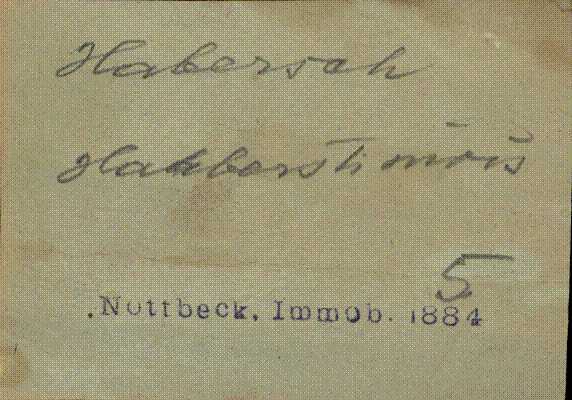 Habersch
Habbersti mõis
5
.Nottbeck, Immob. 1884